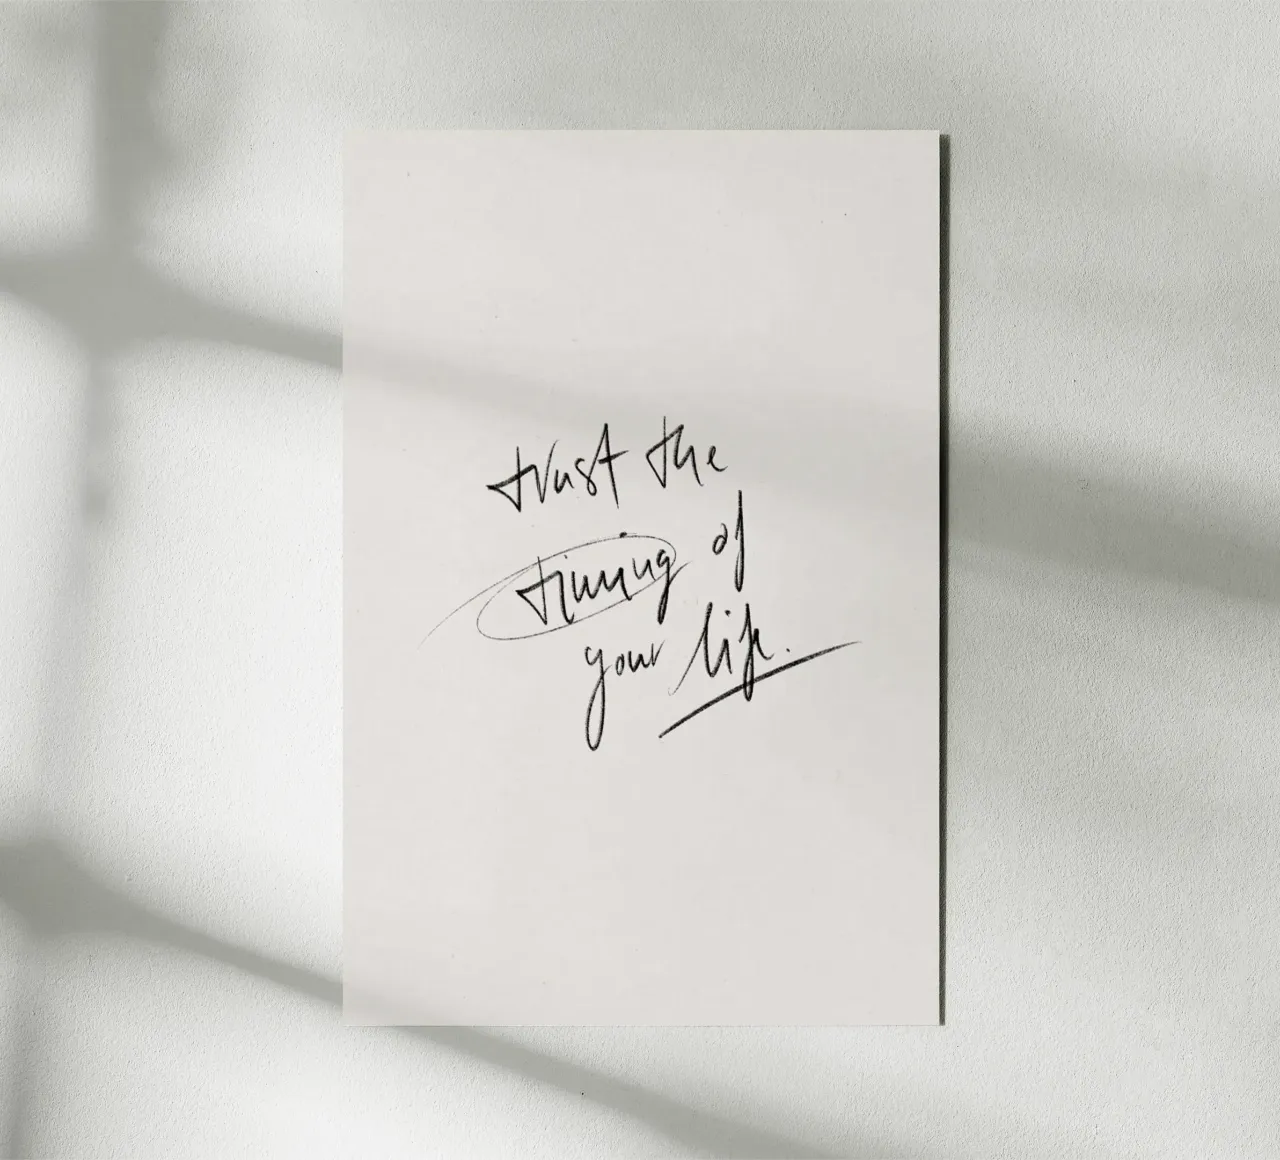 trust the
timing of
your life.